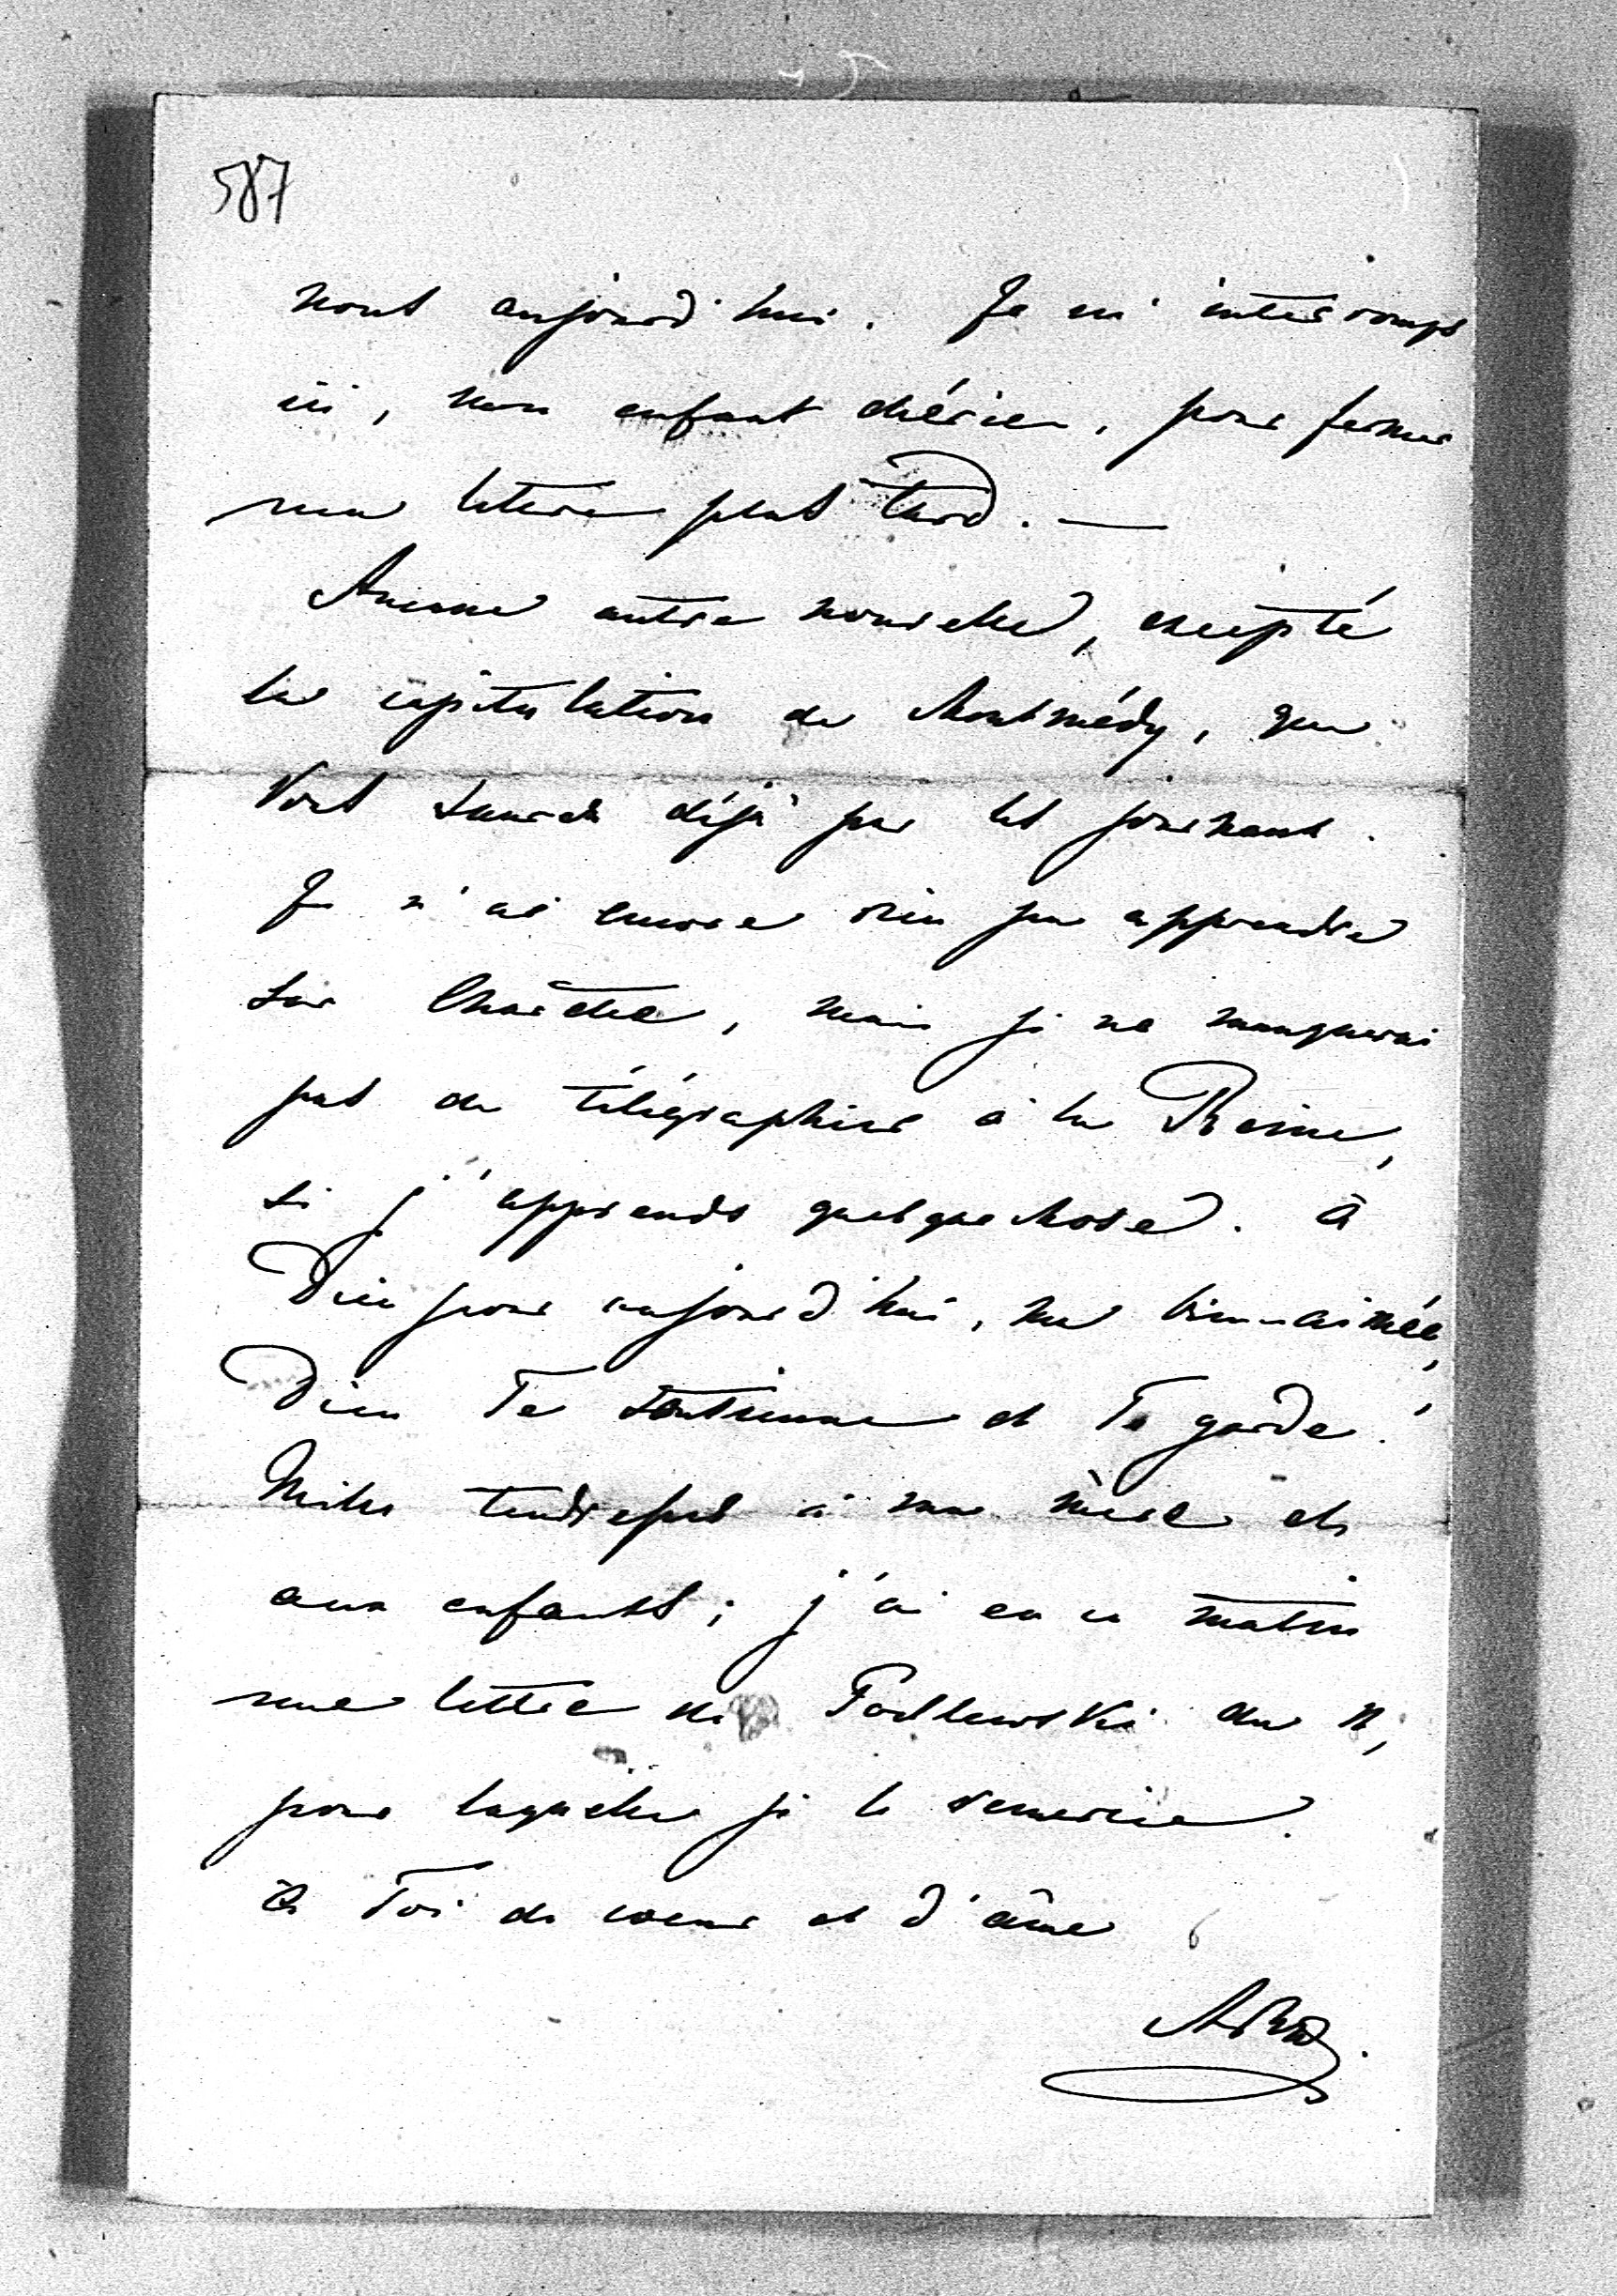 587
nous aujourd'hui. Je m'interromps
ici, mon enfant chérie, pour fermer
ma lettre plus tard. —
Aucune autre nouvelle, excepté
la capitulation de Montmédy, que
Vous saurez déjà par les journaux.
Je n'ai encore rien pu apprendre
sur , mais je ne manquerai
pas de télégraphier à la Reine,
si j'apprends quelque chose. À
Dieu pour aujourd'hui, ma bien-aimée,
Dieu Te soutienne et Te garde!
Milles tendresses à ma mère et
aux enfants; j'ai eu ce matin
une lettre de du
pour laquelle je le remercie.
à Toi de coeur et d'âme